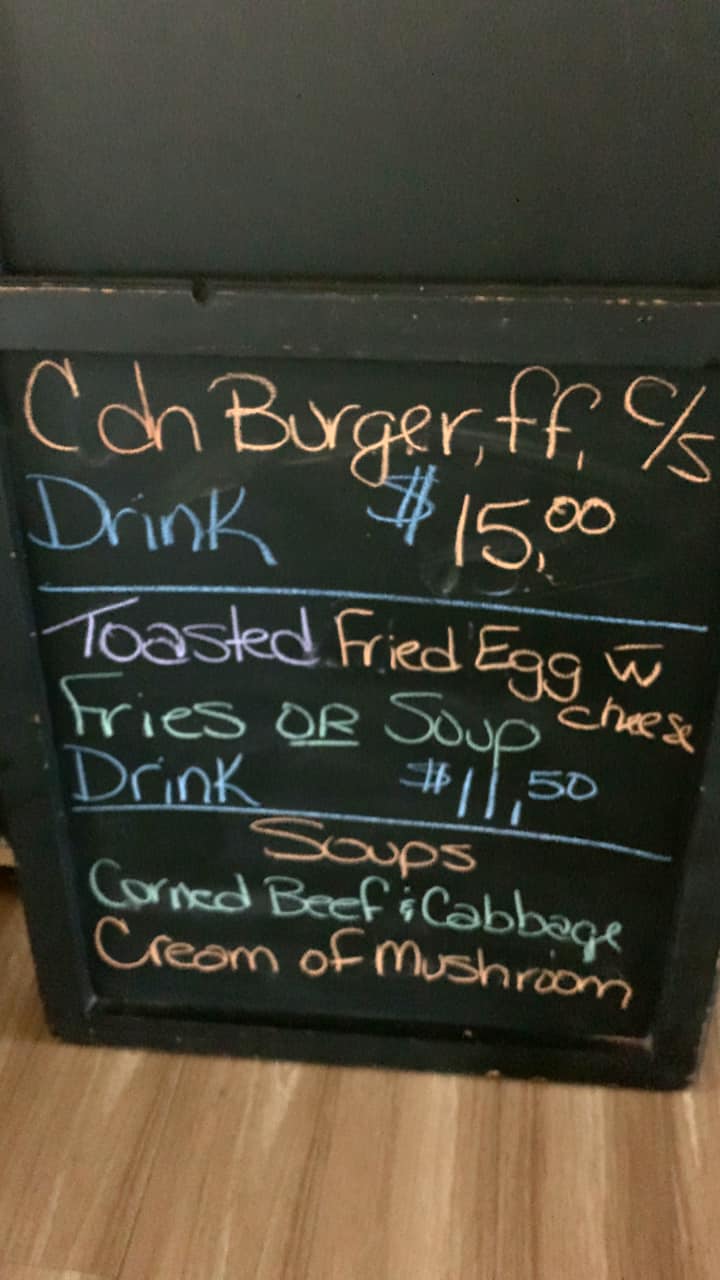 Cdn Burger, ff, c/s
Drink $15.00
Toasted Fried Egg w̄ cheese
Fries OR Soup
Drink $11,50
Soups
Corned Beef & Cabbage
Cream of Mushroom